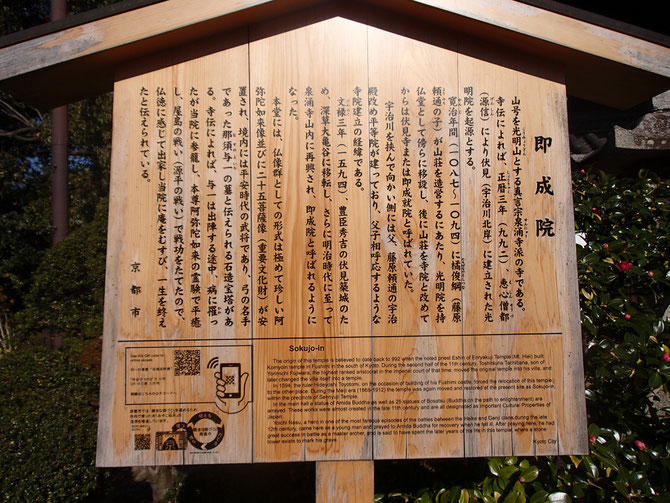 即成院
山号を光明山とする真言宗泉涌寺派の寺である。
寺伝によれば、正暦三年(九九二)、恵心僧都
(源信)により伏見(宇治川北岸)に建立された光
明院を起源とする。
寛治年間(一〇八七〜一〇九四)に橘俊綱(藤原
頼通の子)が山荘を造営するにあたり、光明院を持
仏堂として傍らに移設し、後に山荘を寺院と改めて
からは伏見寺または即成就院と呼ばれていた。
宇治川を挟んで向かい側には父、藤原頼通の宇治
殿改め平等院が建っており、父子相呼応するような
寺院建立の経緯である。
文禄三年(一五九四)、豊臣秀吉の伏見築城のた
め、深草大亀谷に移転し、さらに明治時代に至って
泉涌寺山内に再興され、即成院と呼ばれるように
なった。
本堂には、仏像群としての形式は極めて珍しい阿
弥陀如来像並びに二十五菩薩像(重要文化財)が安
置され、境内には平安時代の武将であり、弓の名手
であった那須与一の墓と伝えられる石造宝塔があ
る。寺伝によれば、与一は出陣する途中、病に罹っ
たが当院に参籠し、本尊阿弥陀如来の霊験で平癒
し、屋島の戦い(源平の戦い)で戦功をたてたので、
仏徳に感じて出家し当院に庵をむすび、一生を終え
たと伝えられている。
京都市
Sokujo-in
The origin of this temple is believed to date back to 992 when the noted priest Eshin of Enryakuji Temple(Mt. Hiei) built
Komyoin temple in Fushimi in the south of Kyoto. During the second half of the 11th century, Toshitsuna Tachibana, son of
Yorimichi Fujiwara, the highest ranked aristocrat in the imperial court of that time, moved the original temple into his villa, and
later changed the villa itself into a temple.
In 1594, the ruler Hideyoshi Toyotomi, on the occasion of building of his Fushimi castle, forced the relocation of this temple
to the other place. During the Meiji era (1868-1912) the temple was again moved and restored at the present site as Sokujo-in
within the precincts of Sennyuji Temple.
In the main hall a statue of Amida Buddha as well as 25 statues of Bosatsu (Buddha on the path to enlightenment) are
arrayed. These works were almost created in the late 11th century and are all designated as Important Cultural Properties of
Japan.
Yoichi Nasu, a hero in one of the most famous episodes of the battles between the Heike and Genji clans during the late
12th century, came here as a young man and prayed to Amida Buddha for recovery when he fell ill. After praying here, he had
great success in battle as a master archer, and is said to have spent the later years of his life in this temple, where a stone
tower exists to mark his grave.
Kyoto City